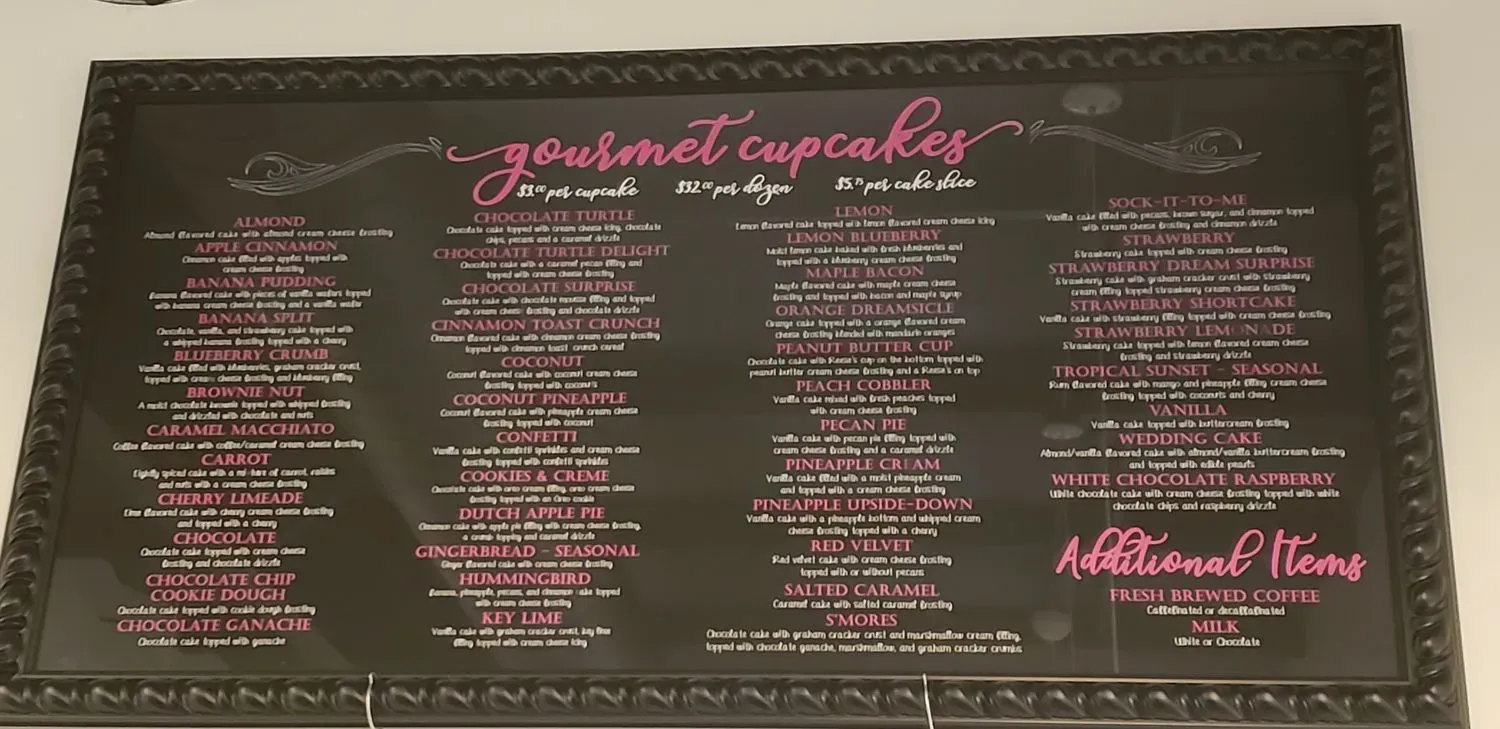 gourmet cupcakes
$3.00 per cupcake $32.00 per dozen $5.75 per cake slice
ALMOND
Almond flavored cake with almond cream cheese frosting
APPLE CINNAMON
Cinnamon cake filled with apples topped with
cream cheese frosting
BANANA PUDDING
Banana flavored cake with pieces of vanilla wafers topped
with banana cream cheese frosting and a vanilla wafer
BANANA SPLIT
Chocolate, vanilla, and strawberry cake topped with
a whipped banana frosting topped with a cherry
BLUEBERRY CRUMB
Vanilla cake filled with blueberries, graham cracker crust,
topped with cream cheese frosting and blueberry filling
BROWNIE NUT
A moist chocolate brownie topped with whipped frosting
and drizzled with chocolate and nuts
CARAMEL MACCHIATO
Coffee flavored cake with coffee/caramel cream cheese frosting
CARROT
Lightly spiced cake with a mixture of carrot, raisins
and nuts with a cream cheese frosting
CHERRY LIMEADE
Lime flavored cake with cherry cream cheese frosting
and topped with a cherry
CHOCOLATE
Chocolate cake topped with cream cheese
frosting and chocolate drizzle
CHOCOLATE CHIP
COOKIE DOUGH
Chocolate cake topped with cookie dough frosting
CHOCOLATE GANACHE
Chocolate cake topped with ganache
CHOCOLATE TURTLE
Chocolate cake topped with cream cheese icing, chocolate
chips, pecans and a caramel drizzle
CHOCOLATE TURTLE DELIGHT
Chocolate cake with a caramel pecan filling and
topped with cream cheese frosting
CHOCOLATE SURPRISE
Chocolate cake with chocolate mousse filling and topped
with cream cheese frosting and chocolate drizzle
CINNAMON TOAST CRUNCH
Cinnamon flavored cake with cinnamon cream cheese frosting
topped with cinnamon toast crunch cereal
COCONUT
Coconut flavored cake with coconut cream cheese
frosting topped with coconuts
COCONUT PINEAPPLE
Coconut flavored cake with pineapple cream cheese
frosting topped with coconut
CONFETTI
Vanilla cake with confetti sprinkles and cream cheese
frosting topped with confetti sprinkles
COOKIES & CREME
Chocolate cake with oreo cream filling, oreo cream cheese
frosting topped with an Oreo cookie
DUTCH APPLE PIE
Cinnamon cake with apple pie filling with cream cheese frosting,
a crumb topping and caramel drizzle
GINGERBREAD - SEASONAL
Ginger flavored cake with cream cheese frosting
HUMMINGBIRD
Banana, pineapple, pecans, and cinnamon cake topped
with cream cheese frosting
KEY LIME
Vanilla cake with graham cracker crust, key lime
filling topped with cream cheese icing
LEMON
Lemon flavored cake topped with lemon flavored cream cheese icing
LEMON BLUEBERRY
Moist lemon cake baked with fresh blueberries and
topped with a blueberry cream cheese frosting
MAPLE BACON
Maple flavored cake with maple cream cheese
frosting and topped with bacon and maple syrup
ORANGE DREAMSICLE
Orange cake topped with a orange flavored cream
cheese frosting blended with mandarin oranges
PEANUT BUTTER CUP
Chocolate cake with Reese's cup on the bottom topped with
peanut butter cream cheese frosting and a Reese's on top
PEACH COBBLER
Vanilla cake mixed with fresh peaches topped
with cream cheese frosting
PECAN PIE
Vanilla cake with pecan pie filling topped with
cream cheese frosting and a caramel drizzle
PINEAPPLE CREAM
Vanilla cake filled with a moist pineapple cream
and topped with a cream cheese frosting
PINEAPPLE UPSIDE-DOWN
Vanilla cake with a pineapple bottom and whipped cream
cheese frosting topped with a cherry
RED VELVET
Red velvet cake with cream cheese frosting
topped with or without pecans
SALTED CARAMEL
Caramel cake with salted caramel frosting
S'MORES
Chocolate cake with graham cracker crust and marshmallow cream filling,
topped with chocolate ganache, marshmallow, and graham cracker crumbs
SOCK-IT-TO-ME
Vanilla cake filled with pecans, brown sugar, and cinnamon topped
with cream cheese frosting and cinnamon drizzle
STRAWBERRY
Strawberry cake topped with cream cheese frosting
STRAWBERRY DREAM SURPRISE
Strawberry cake with graham cracker crust with strawberry
cream filling topped strawberry cream cheese frosting
STRAWBERRY SHORTCAKE
Vanilla cake with strawberry filling topped with cream cheese frosting
STRAWBERRY LEMONADE
Strawberry cake topped with lemon flavored cream cheese
frosting and strawberry drizzle
TROPICAL SUNSET - SEASONAL
Rum flavored cake with mango and pineapple filling cream cheese
frosting topped with coconuts and cherry
VANILLA
Vanilla cake topped with buttercream frosting
WEDDING CAKE
Almond/vanilla flavored cake with almond/vanilla buttercream frosting
and topped with edible pearls
WHITE CHOCOLATE RASPBERRY
White chocolate cake with cream cheese frosting topped with white
chocolate chips and raspberry drizzle
Additional Items
FRESH BREWED COFFEE
Caffeinated or decaffeinated
MILK
White or Chocolate